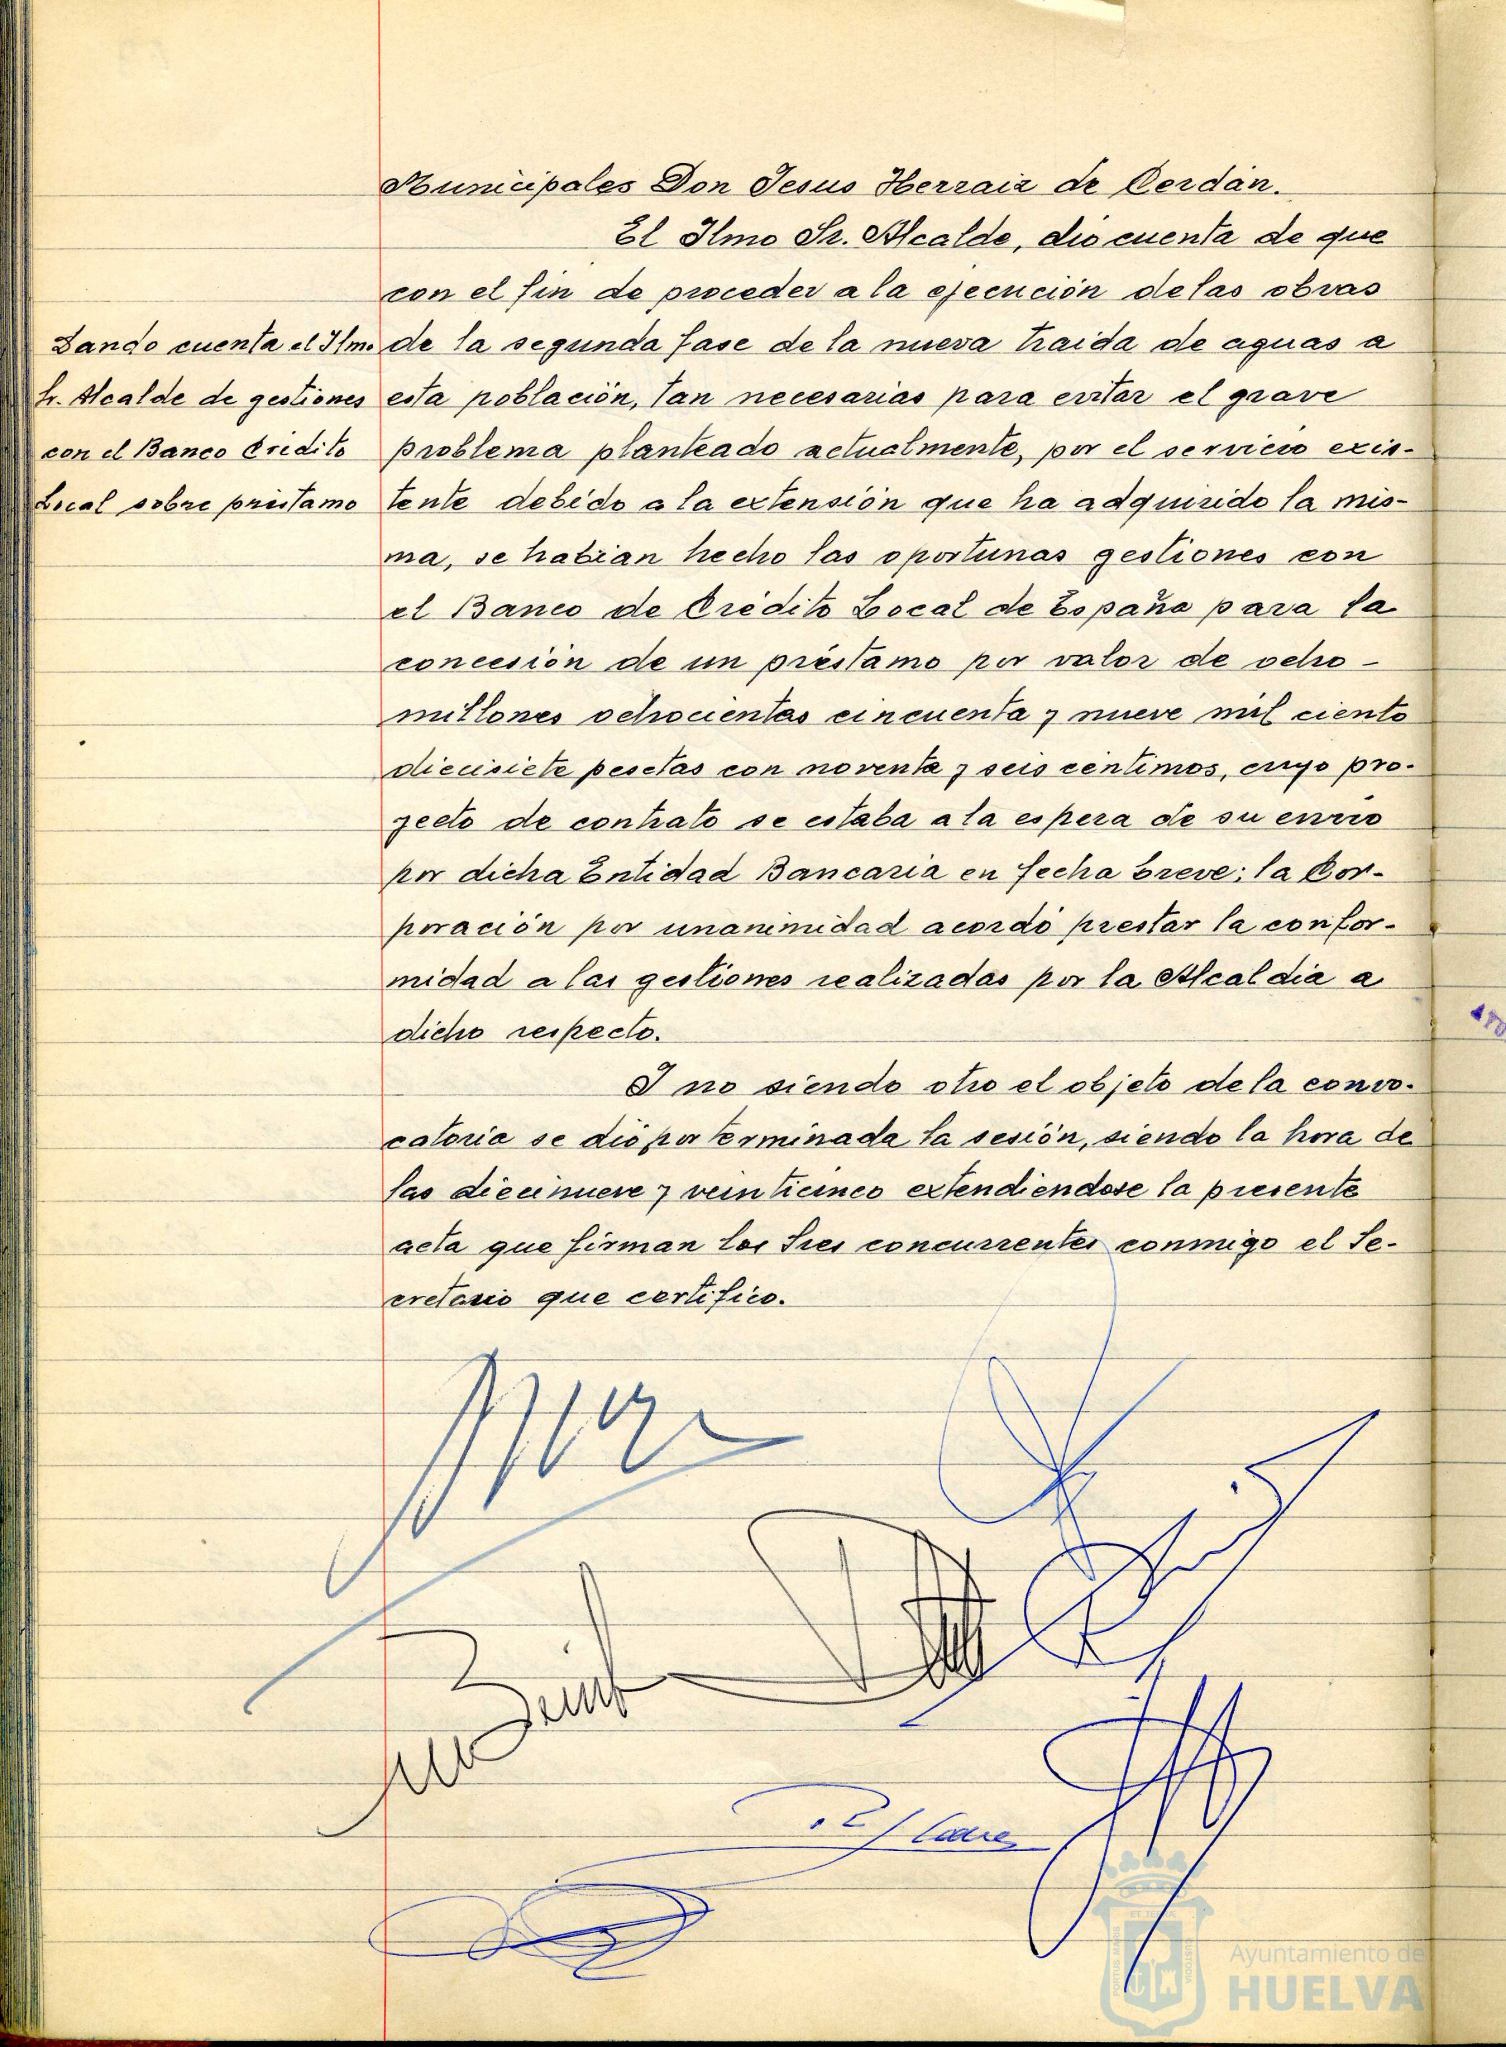 Municipales Don Jesus Herraiz de Cerdán.
El Ilmo Sr. Alcalde, dió cuenta de que
con el fin de proceder a la ejecución de las obras
de la segunda fase de la nueva traida de aguas a
esta población, tan necesarias para evitar el grave
problema planteado actualmente, por el servicio exis-
tente debido a la extensión que ha adquirido la mis-
ma, se habian hecho las oportunas gestiones con
el Banco de Crédito Local de España para la
concesión de un préstamo por valor de ocho-
millones ochocientas cincuenta y nueve mil ciento
diecisiete pesetas con noventa y seis centimos, cuyo pro-
yecto de contrato se estaba a la espera de su envio
por dicha Entidad Bancaria en fecha breve; la Cor-
poración por unanimidad acordó prestar la confor-
midad a las gestiones realizadas por la Alcaldia a
dicho respecto.
Y no siendo otro el objeto de la convo-
catoria se dió por terminada la sesión, siendo la hora de
las diecinueve y veinticinco extendiéndose la presente
acta que firman los Sres concurrentes conmigo el Se-
cretario que certifico.
Dando cuenta el Ilmo.
Sr. Alcalde de gestiones
con el Banco Crédito
Local sobre préstamo
AYU
Ayuntamiento de
HUELVA